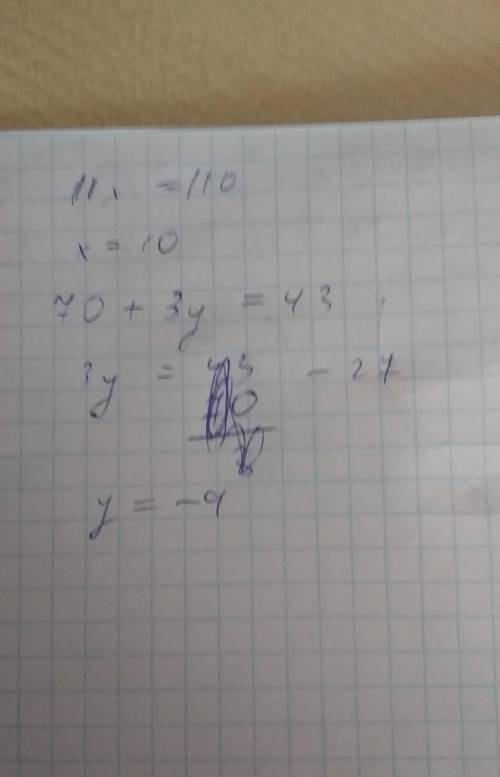 11x = 110
x = 10
70 + 3y = 43
3y = - 27
y = -9